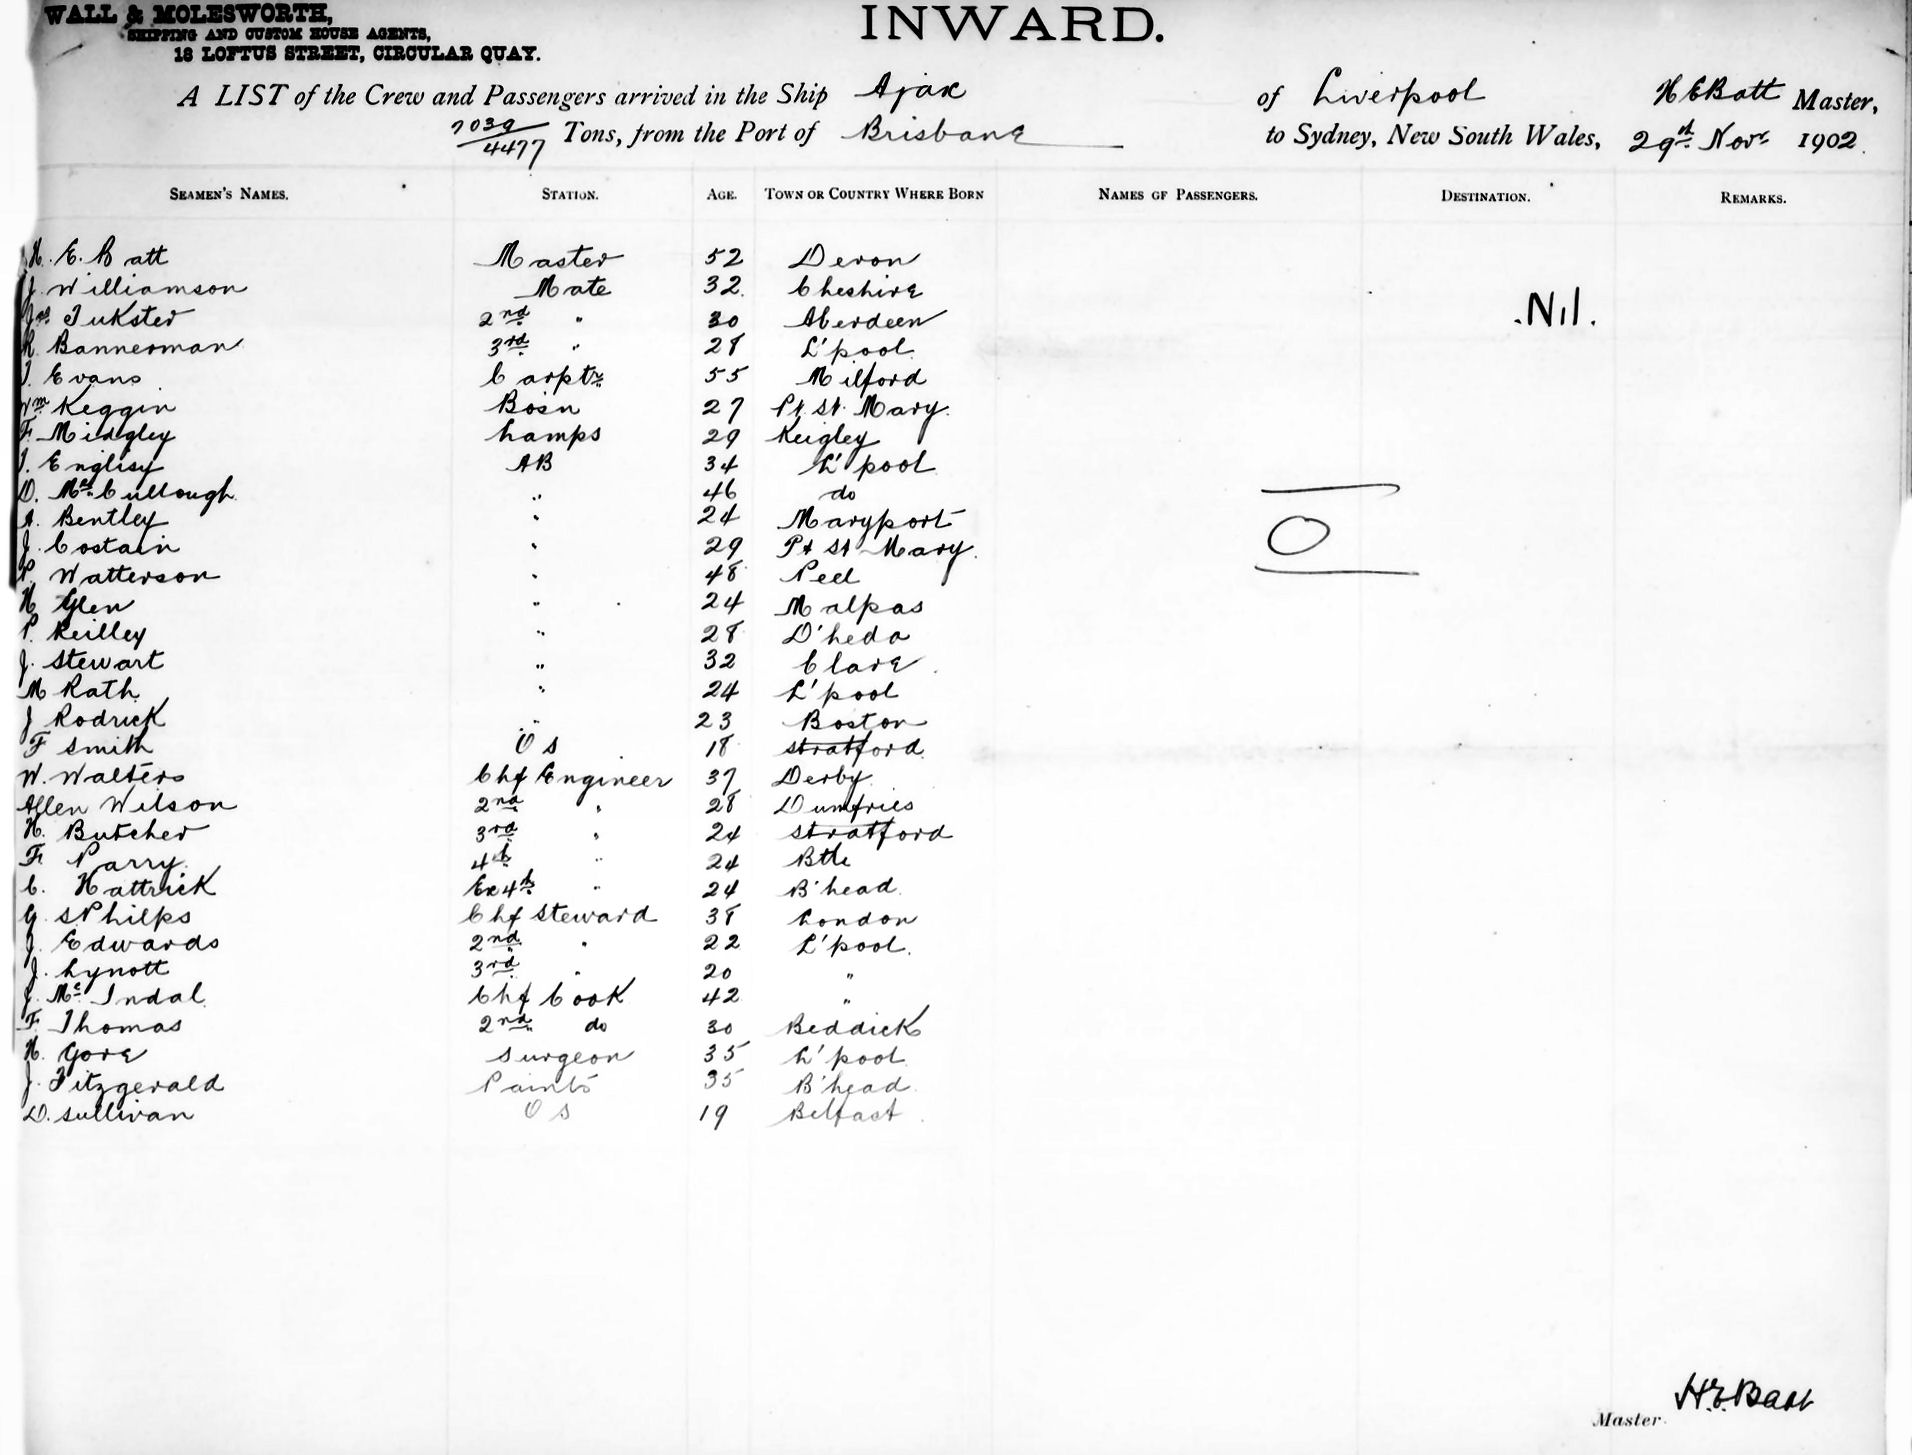 WALL & MOLESWORTH,
SHIPPING AND CUSTOM HOUSE AGENTS,
18 LOFTUS STREET, CIRCULAR QUAY.
INWARD.
A LIST of the Crew and Passengers arrived in the Ship Ajax of Liverpool H E Batt Master,
7039/4477 Tons, from the Port of Brisbane to Sydney, New South Wales, 29th Novr 1902.
SEAMEN'S NAMES. STATION. AGE. TOWN OR COUNTRY WHERE BORN NAMES OF PASSENGERS. DESTINATION. REMARKS.
H. E. Batt Master 52 Devon
J. Williamson Mate 32. Cheshire
Jno Tukster 2nd " 30 Aberdeen
Nil.
R. Bannerman 3rd " 28 L'pool
T. Evans Carptr 55 Milford
Wm Keggin Bosn 27 Pt St Mary.
F. Midgley Lamps 29 Keigley
T. Englisy AB 34 L'pool
D. McCullough " 46 do
A. Bentley " 24 Maryport
J. Costain " 29 Pt St Mary.
O
P. Watterson " 48 Peel
H Glen " 24 Malpas
P. Reilley " 28 D'heda
J. Stewart " 32 Clare
M Rath " 24 L'pool
J Rodrick " 23 Boston
F Smith O S 18 Stratford
W. Walters Chf Engineer 37 Derby
Allen Wilson 2nd " 28 Dumfries
H. Butcher 3rd " 24 Stratford
F. Parry 4th " 24 Btle
C. Hattrick Ex 4th " 24 B'head
G. S Philps Chf Steward 38 London
J. Edwards 2nd " 22 L'pool.
J. Lynott 3rd " 20 "
J. Mc Indal Chf Cook 42 "
F. Thomas 2nd do 30 Beddick
H. Gore Surgeon 35 L'pool
J. Fitzgerald Paints 35 B'head
D. Sullivan O S 19 Belfast
Master H. E. Batt